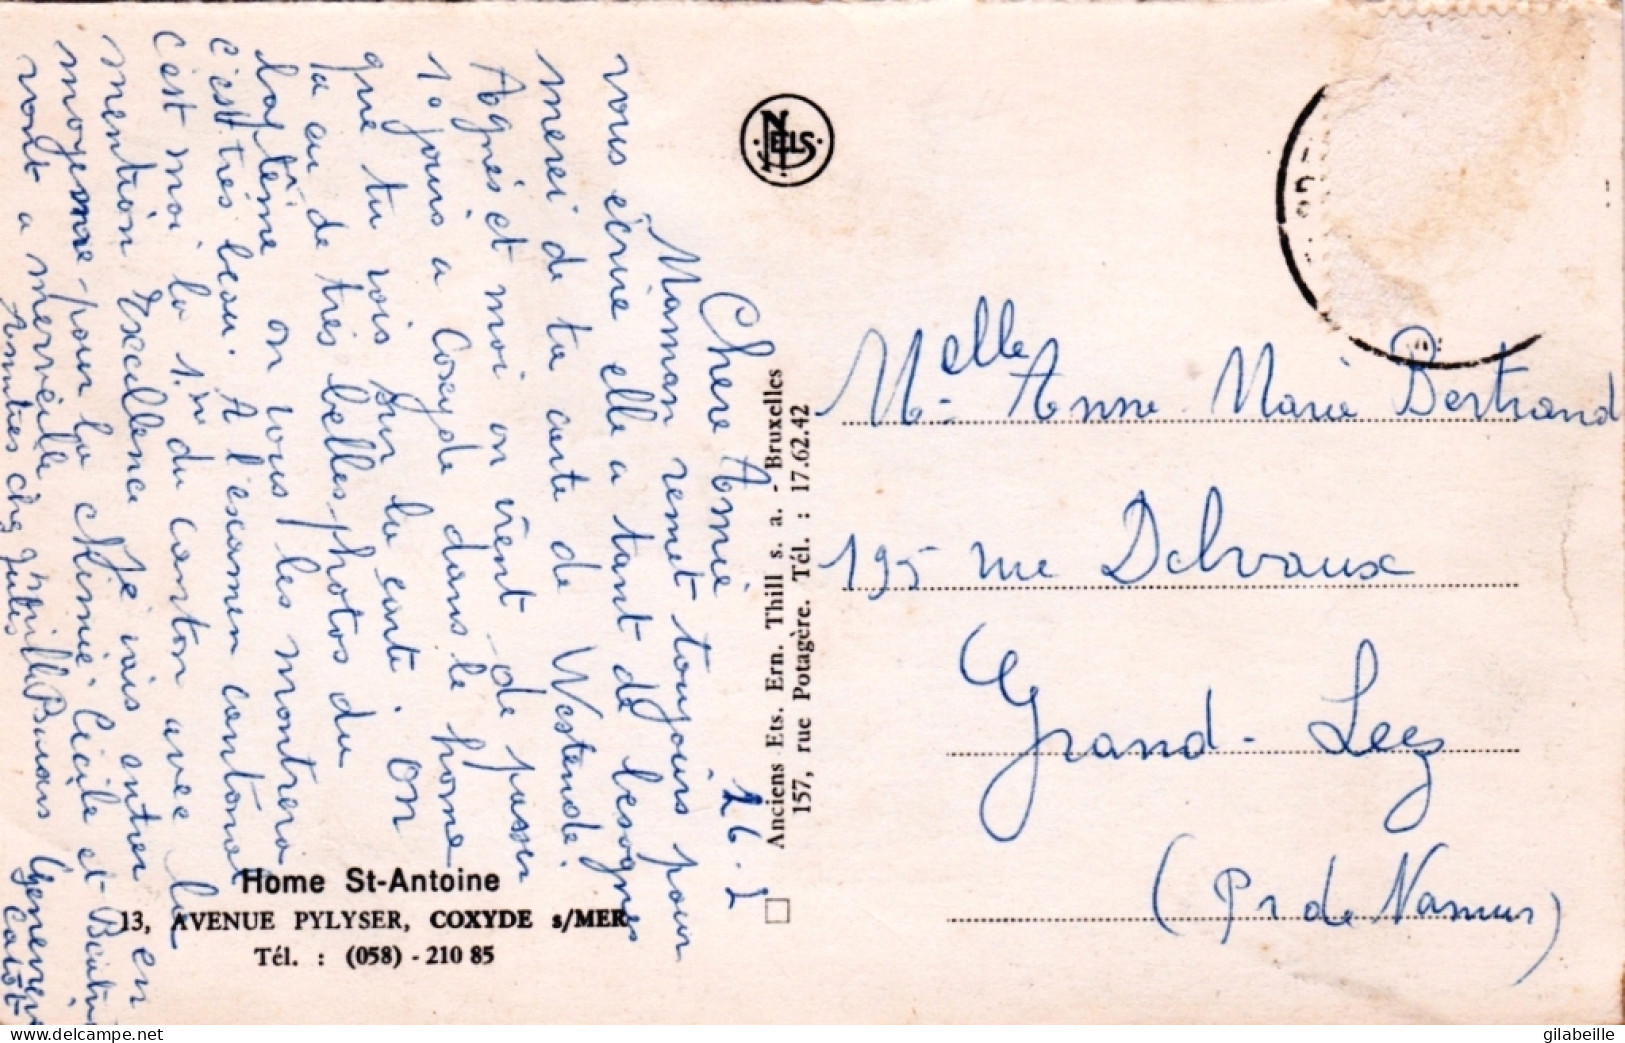 Chère Annie
26.7
Maman remet toujours pour
vous écrire elle a tant de besognes
merci de ta carte de Westende.
Agnès et moi on vient de passer
10 jours a Coxyde dans le home
que tu vois sur la carte. On
a eu de très belles photos du
baptême on vous les montrera
c'est très beau. A l'examen cantonal
c'est moi la 1re du canton avec la
mention Excellence Je vais entrer en
moyenne pour la chimie Cécile et Béatrice
vont a merveille
Amitiés chez
Geneviève
Home St-Antoine
13, AVENUE PYLYSER, COXYDE s/MER
Tél. : (058) - 210 85
NELS
Anciens Ets. Ern. Thill s. a. - Bruxelles
157, rue Potagère. Tél. : 17.62.42
Melle Anne Marie Bertrand
195 rue Delvaux
Grand-Leez
(Pr de Namur)
delcampe.net
gilabeille